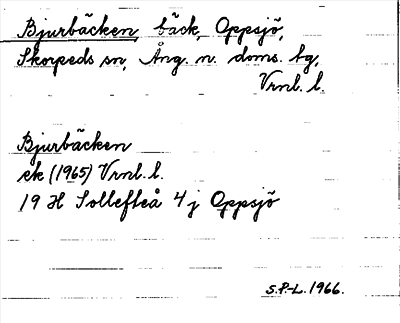 Bjurbäcken, bäck, Oppsjö,
Skorpeds sn, Ång. n. doms. bg,
Vrnl. l.
Bjurbäcken
ek (1965) Vrnl. l.
19 H Sollefteå 4 j Oppsjö
S.P-L. 1966.